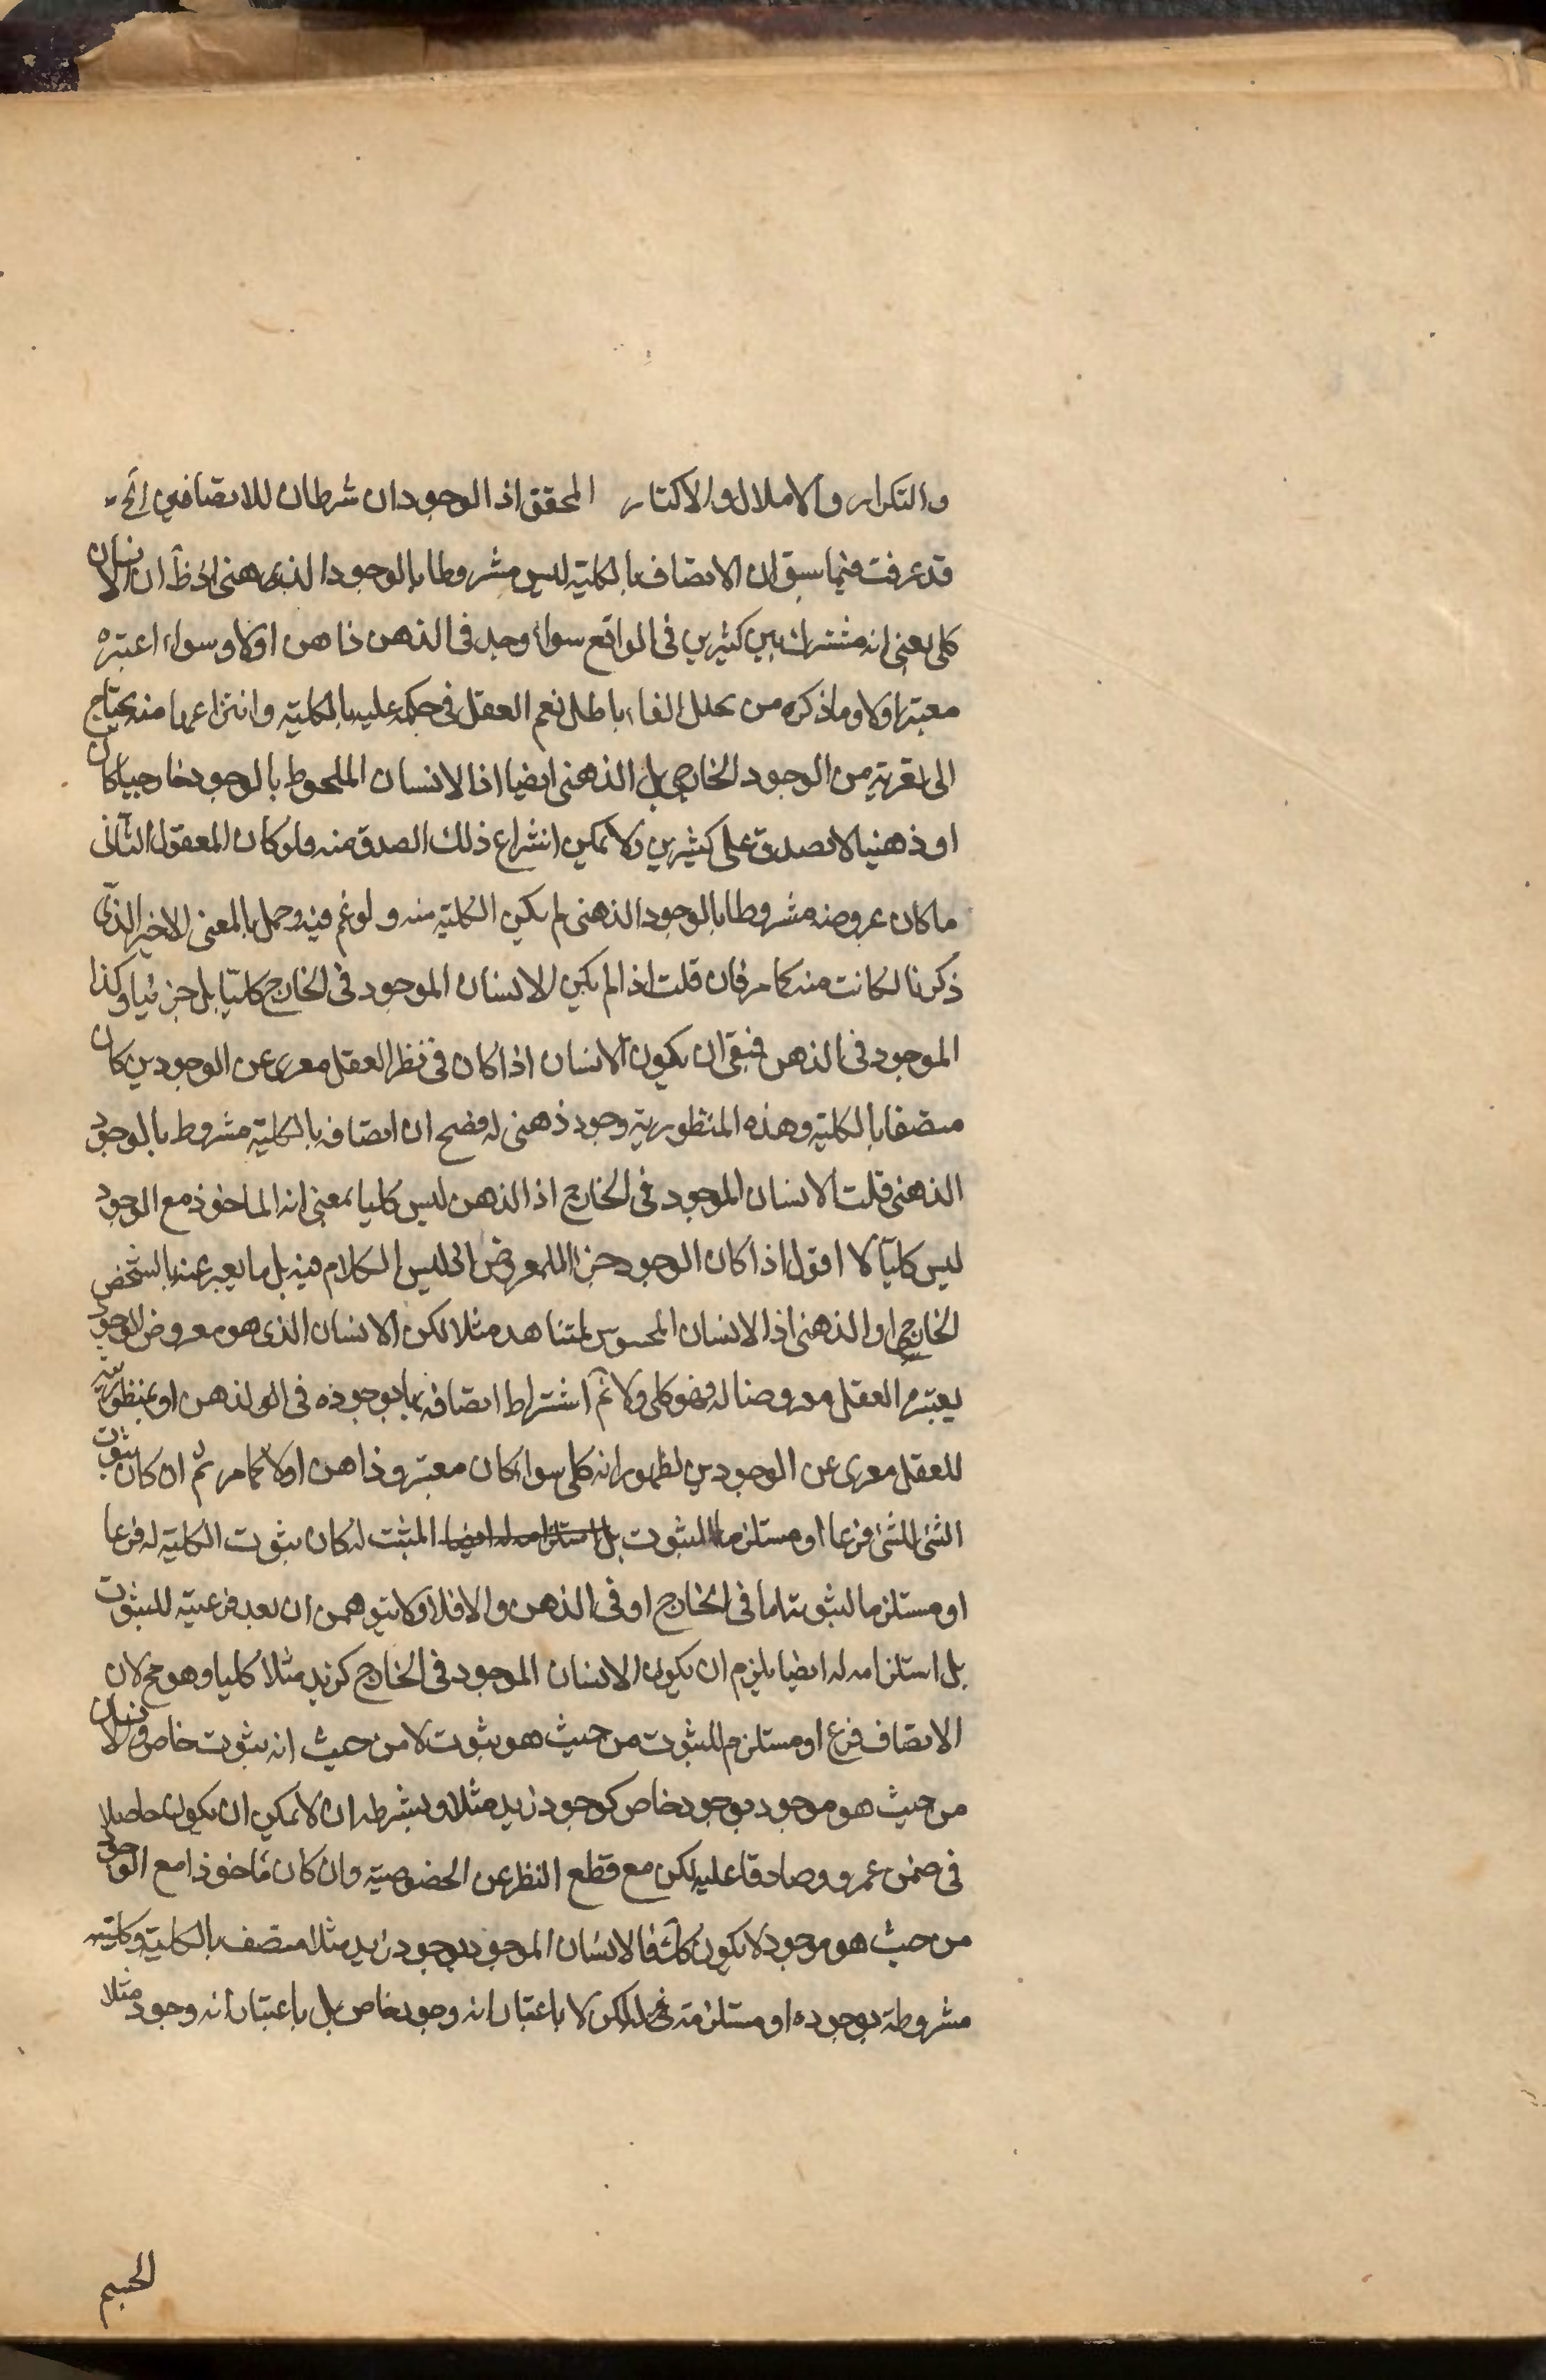 والتكرار والاملال والاكثار المحقق اذ الوجودان شرطان للاتصافين الخ
قد عرفت فيما سبق ان الاتصاف بالكلية ليس مشروطا بالوجود الذهنى اذ ظ ان الانسان
كلى بمعنى انه مشترك بين كثيرين فى الواقع سواء وجد فى الذهن ذاهن اولا وسواء اعتبره
معتبر اولا وما ذكره من تخلل الفاء باطل نعم العقل فى حكمه عليه بالكلية وانتزاعها منه يحتاج
الى تعريته من الوجود الخارجى بل الذهنى ايضا اذ الانسان الملحوظ بالوجود خارجيا كان
او ذهنيا لا يصدق على كثيرين ولا يمكن انتزاع ذلك الصدق منه ولو كان المعقول الثانى
ما كان عروضه مشروطا بالوجود الذهنى لم يكن الكلية منه ولو عمم فيه وحمل بالمعنى الاخير الذى
ذكرنا لكانت منه كما مر فان قلت اذ لم يكن الانسان الموجود فى الخارج كليا بل جزئيا وكذا
الموجود فى الذهن فبقى ان يكون الانسان اذا كان فى نظر العقل معرى عن الوجودين كان
متصفا بالكلية وهذه المنظورية وجود ذهنى له فصح ان اتصافه بالكلية مشروط بالوجود
الذهنى قلت الانسان الموجود فى الخارج اذ الذهن ليس كليا بمعنى انه الماخوذ مع الوجود
ليس كليا لا اقول اذا كان الوجود جزء المعروض اذ ليس الكلام فيه بل ما يعبر عنه بالشخص
الخارجى او الذهنى اذ الانسان المحسوس المشاهد مثلا لكن الانسان الذى هو معروض للوجود
يعتبره العقل معروضا له فهو كلى ولا ثم اشتراط اتصافه بها بوجوده فى الذهن او بمنظوريته
للعقل معرى عن الوجودين لظهور انه كلى سواء كان معتبر وذاهن اولا كما مر ثم ان كان ثبوت
الشئ للشئ فرعا او مستلزما لثبوت بل استلزامه له ايضا المثبت له كان ثبوت الكلية له فرعا
او مستلزما لثبوته اما فى الخارج او فى الذهن والا فلا ولا يتوهمن ان بعد فرعيته للثبوت
بل استلزامه له ايضا يلزم ان يكون الانسان الموجود فى الخارج كزيد مثلا كليا وهو مح لان
الاتصاف فرع او مستلزم للثبوت من حيث هو ثبوت لا من حيث انه ثبوت خاص والانسان
من حيث هو موجود بوجود خاص كوجود زيد مثلا وبشرطه ان لا يمكن ان يكون حاصلا
فى ضمن عمرو وصادقا عليه لكن مع قطع النظر عن الخصوصية وان كان ماخوذا مع الوجود
من حيث هو موجود لا يكون كك فالانسان الموجود بوجود زيد مثلا متصف بالكلية وكليته
مشروطة بوجوده او مستلزمة له لكن لا باعتبار انه وجود خاص بل باعتبار انه وجود مثلا
الجسم